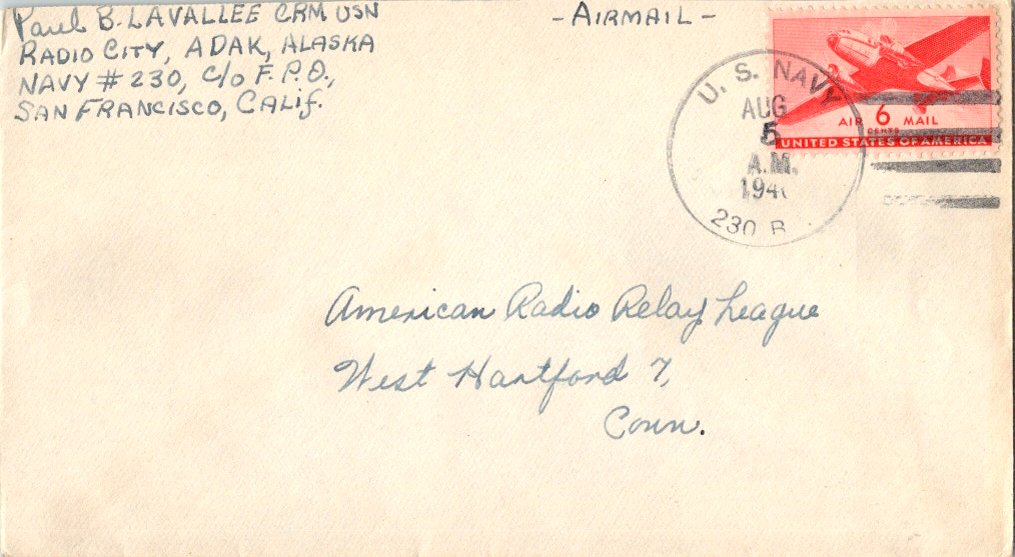 Paul B. LAVALLEE CRM USN
RADIO CITY, ADAK, ALASKA
NAVY # 230, C/o F.P.O.,
SAN FRANCISCO, Calif.
- AIRMAIL -
U. S. NAVY
AUG
5
A.M.
230 B
AIR 6 MAIL
CENTS
UNITED STATES OF AMERICA
American Radio Relay League
West Hartford 7,
Conn.